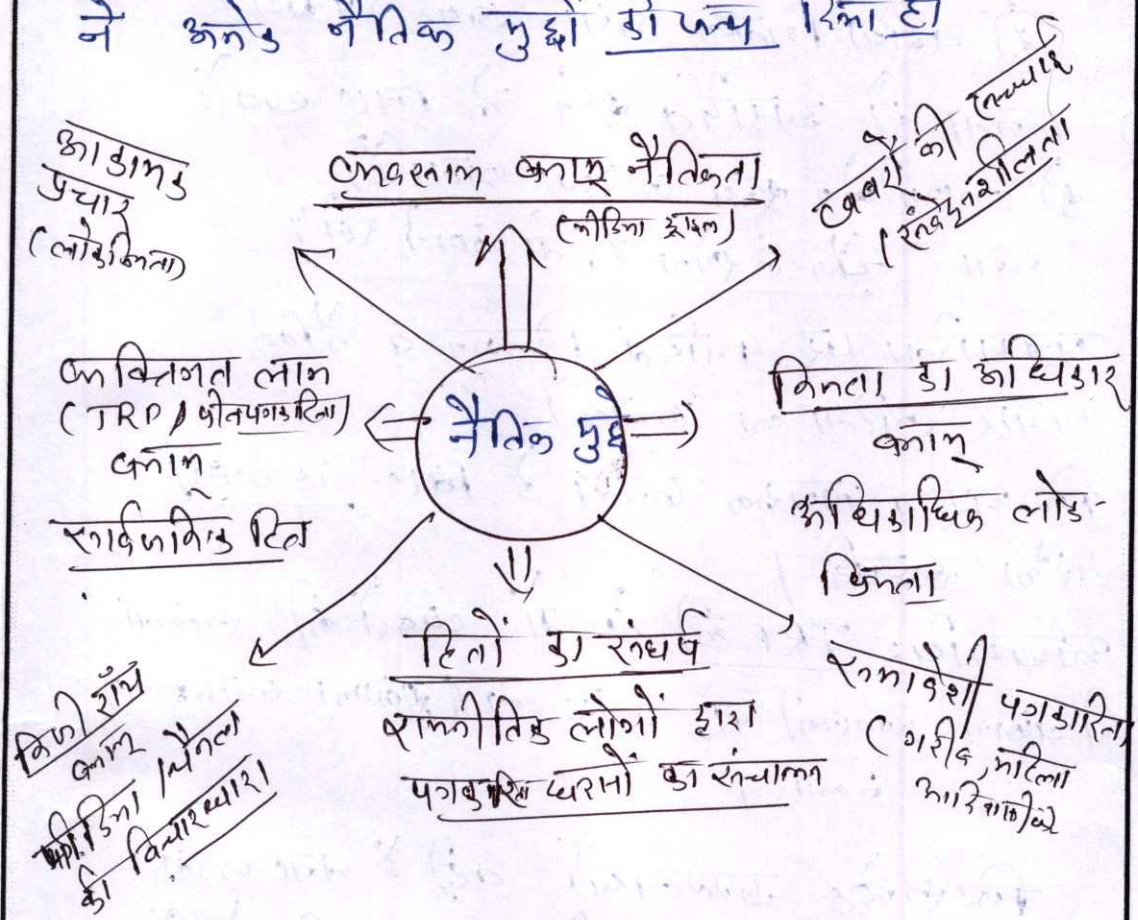 ने अनेक नैतिक मुद्दों को जन्म दिया है।
आक्रामक
प्रचार
(लोकप्रियता)
व्यवसाय बनाम् नैतिकता
(मीडिया ट्रायल)
खबरों की सच्चाई
/ संवेदनशीलता
व्यक्तिगत लाभ
(TRP / पीतपत्रकारिता)
बनाम्
सार्वजनिक हित
नैतिक मुद्दे
निजता का अधिकार
बनाम्
अधिकाधिक लोक-
प्रियता
निजी राय
बनाम्
मीडिया / चैनल
की विचारधारा
हितों का संघर्ष
राजनीतिक लोगों द्वारा
पत्रकारिता घरानों का संचालन
समावेशी पत्रकारिता
(गरीब, महिला